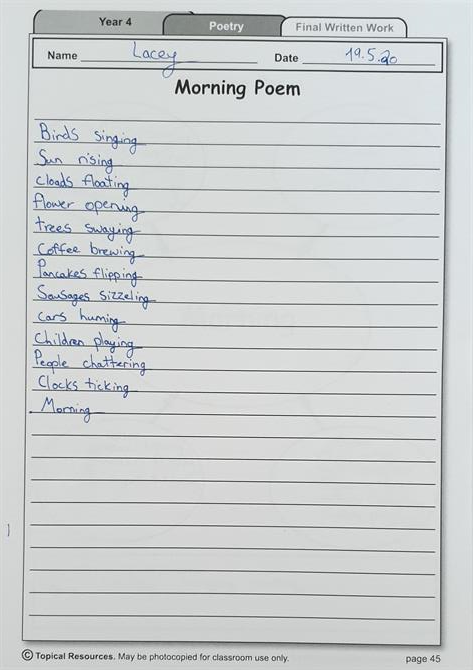 Year 4
Poetry
Final Written Work
Name Lacey Date 19.5.20
Morning Poem
Birds singing
Sun rising
clouds floating
flower opening
trees swaying
Coffee brewing
Pancakes flipping
Sausages sizzeling
cars huming
Children playing
People chattering
Clocks ticking
Morning
© Topical Resources. May be photocopied for classroom use only.
page 45